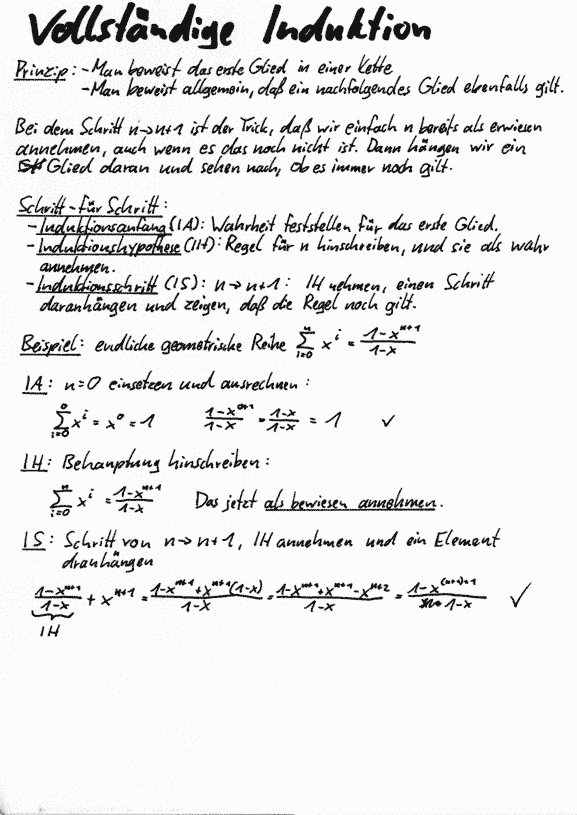 Vollständige Induktion
Prinzip: - Man beweist das erste Glied in einer Kette
- Man beweist allgemein, daß ein nachfolgendes Glied ebenfalls gilt.
Bei dem Schritt n→n+1 ist der Trick, daß wir einfach n bereits als erwiesen
annehmen, auch wenn es das noch nicht ist. Dann hängen wir ein
Glied daran und sehen nach, ob es immer noch gilt.
Schritt-für Schritt:
- Induktionsanfang (IA): Wahrheit feststellen für das erste Glied.
- Induktionshypothese (IH): Regel für n hinschreiben, und sie als wahr
annehmen.
- Induktionsschritt (IS): n→n+1: IH nehmen, einen Schritt
daranhängen und zeigen, daß die Regel noch gilt.
Beispiel: endliche geometrische Reihe ∑_{i=0}^{n} x^i = (1-x^{n+1})/(1-x)
IA: n=0 einsetzen und ausrechnen:
∑_{i=0}^{0} x^i = x^0 = 1 (1-x^{0+1})/(1-x) = (1-x)/(1-x) = 1 ✓
IH: Behauptung hinschreiben:
∑_{i=0}^{n} x^i = (1-x^{n+1})/(1-x) Das jetzt als bewiesen annehmen.
IS: Schritt von n→n+1, IH annehmen und ein Element
dranhängen
(1-x^{n+1})/(1-x) + x^{n+1} = (1-x^{n+1}+x^{n+1}(1-x))/(1-x) = (1-x^{n+1}+x^{n+1}-x^{n+2})/(1-x) = (1-x^{(n+1)+1})/(1-x) ✓
IH